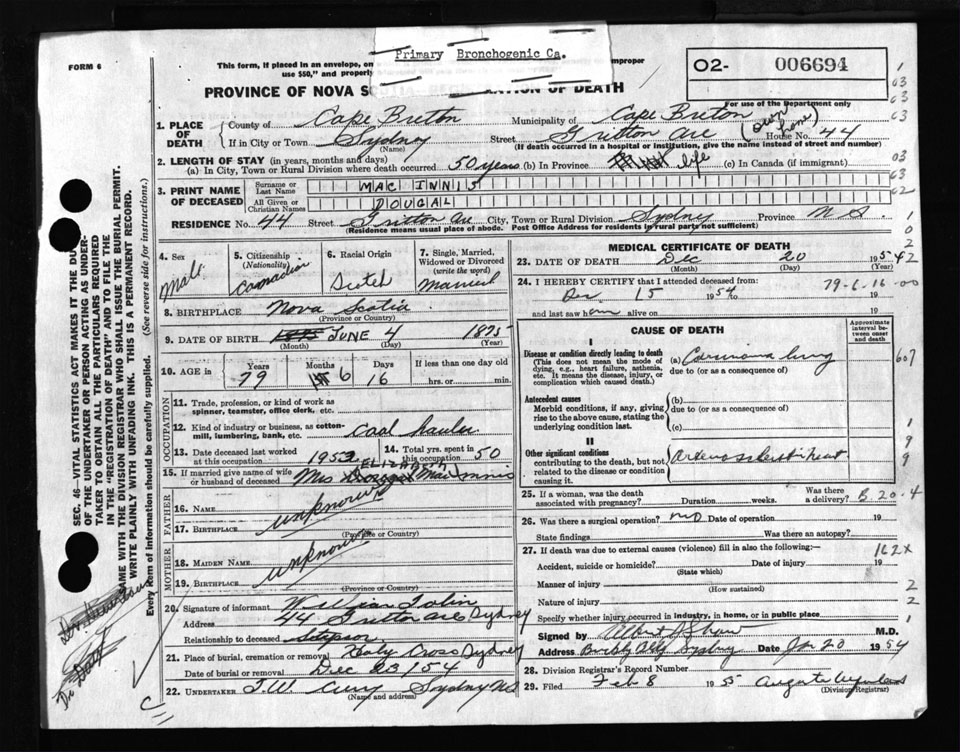 Primary Bronchogenic Ca.
FORM 6
This form, if placed in an envelope, on improper
use $50," and properly
PROVINCE OF NOVA SC ATION OF DEATH
02- 006694
For use of the Department only
1. PLACE OF DEATH
County of Cape Breton Municipality of Cape Breton (own home)
If in City or Town Sydney Street Gritton Ave House No. 44
(Name) (If death occurred in a hospital or institution, give the name instead of street and number)
2. LENGTH OF STAY (in years, months and days)
(a) In City, Town or Rural Division where death occurred 50 years (b) In Province life (c) In Canada (if immigrant)
3. PRINT NAME OF DECEASED
Surname or Last Name MAC INNIS
All Given or Christian Names DOUGAL
RESIDENCE No. 44 Street Gritton Ave City, Town or Rural Division Sydney Province N S.
(Residence means usual place of abode. Post Office Address for residents in rural parts not sufficient)
4. Sex Male
5. Citizenship (Nationality) Canadian
6. Racial Origin Scotch
7. Single, Married, Widowed or Divorced (write the word) Married
8. BIRTHPLACE Nova Scotia
(Province or Country)
9. DATE OF BIRTH JUNE 4 1875
(Month) (Day) (Year)
10. AGE in Years Months Days If less than one day
79 6 16 hrs. or min.
OCCUPATION
11. Trade, profession, or kind of work as spinner, teamster, office clerk, etc.
12. Kind of industry or business, as cotton-mill, lumbering, bank, etc. Coal hauler
13. Date deceased last worked at this occupation 1953
14. Total yrs. spent in this occupation 50
15. If married give name of wife or husband of deceased Mrs ELIZABETH MacInnis
FATHER
16. NAME unknown
17. BIRTHPLACE
(Province or Country)
MOTHER
18. MAIDEN NAME unknown
19. BIRTHPLACE
(Province or Country)
20. Signature of informant William Tobin
Address 44 Gritton Ave Sydney
Relationship to deceased Stepson
21. Place of burial, cremation or removal Holy Cross Sydney
Date of burial or removal Dec 23/54
22. UNDERTAKER T.W Curry Sydney NS
(Name and address)
MEDICAL CERTIFICATE OF DEATH
23. DATE OF DEATH Dec 20 1954
(Month) (Day) (Year)
24. I HEREBY CERTIFY that I attended deceased from:
Dec 15 1954 to 19
79-6-16-00
and last saw him alive on 19
CAUSE OF DEATH
Approximate interval between onset and death
I
Disease or condition directly leading to death
(This does not mean the mode of dying, e.g., heart failure, asthenia, etc. It means the disease, injury, or complication which caused death.)
(a) Carcinoma lung
due to (or as a consequence of)
Antecedent causes
Morbid conditions, if any, giving rise to the above cause, stating the underlying condition last.
(b)
due to (or as a consequence of)
(c)
II
Other significant conditions
contributing to the death, but not related to the disease or condition causing it.
Arteriosclerotic heart
25. If a woman, was the death associated with pregnancy? Duration weeks. Was there a delivery? B.20-4
26. Was there a surgical operation? no Date of operation 19
State findings Was there an autopsy?
27. If death was due to external causes (violence) fill in also the following:— 162X
Accident, suicide or homicide? Date of injury 19
(State which)
Manner of injury
(How sustained)
Nature of injury
Specify whether injury occurred in industry, in home, or in public place
Signed by Albert Shaw M.D.
Address Sydney Date Jan 20 1954
28. Division Registrar's Record Number
29. Filed Feb 8 1955
(Division Registrar)
SEC. 46—VITAL STATISTICS ACT MAKES IT THE DUTY
OF THE UNDERTAKER OR PERSON ACTING AS UNDER-
TAKER TO OBTAIN ALL THE PARTICULARS REQUIRED
IN THE "REGISTRATION OF DEATH" AND TO FILE THE
SAME WITH THE DIVISION REGISTRAR WHO SHALL ISSUE THE BURIAL PERMIT.
WRITE PLAINLY WITH UNFADING INK. THIS IS A PERMANENT RECORD.
Every item of information should be carefully supplied. (See reverse side for instructions.)